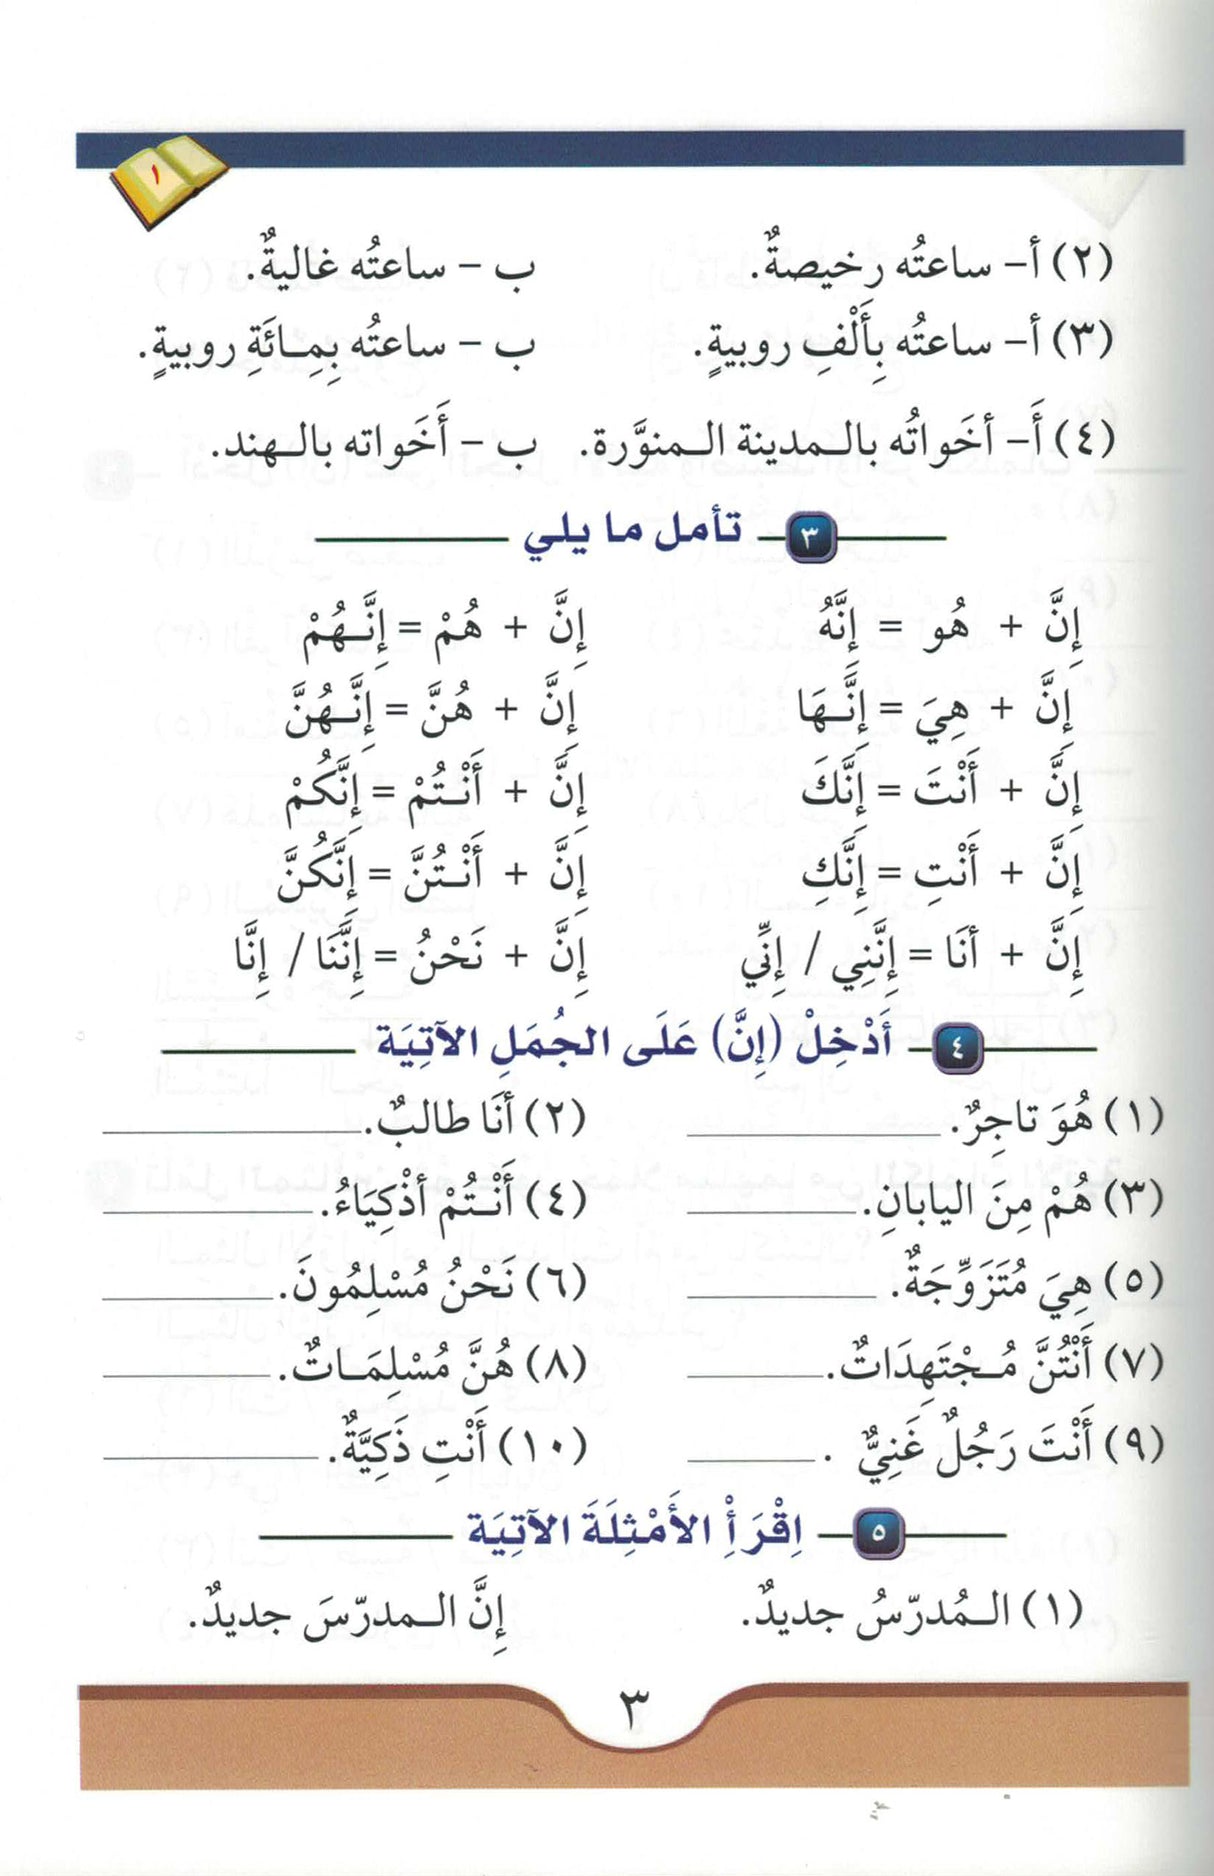 ١
(٢) أ- ساعتُه رخيصةٌ. ب - ساعتُه غاليةٌ.
(٣) أ- ساعتُه بِأَلْفِ روبيةٍ. ب - ساعتُه بِمِائَةِ روبيةٍ.
(٤) أَ- أخَواتُه بالمدينة المنوَّرة. ب - أَخَواته بالهند.
٣ تأمل ما يلي
إِنَّ + هُو = إِنَّهُ إِنَّ + هُمْ = إِنَّهُمْ
إِنَّ + هِيَ = إِنَّهَا إِنَّ + هُنَّ = إِنَّهُنَّ
إِنَّ + أَنْتَ = إِنَّكَ إِنَّ + أَنْتُمْ = إِنَّكُمْ
إِنَّ + أَنْتِ = إِنَّكِ إِنَّ + أَنْتُنَّ = إِنَّكُنَّ
إِنَّ + أنَا = إِنَّنِي / إِنِّي إِنَّ + نَحْنُ = إِنَّنَا / إِنَّا
٤ أَدْخِلْ (إِنَّ) عَلَى الجُمَلِ الآتِيَة
(١) هُوَ تاجِرٌ. (٢) أنَا طالبٌ.
(٣) هُمْ مِنَ اليابانِ. (٤) أَنْتُمْ أذْكِيَاءُ.
(٥) هِيَ مُتَزَوِّجَةٌ. (٦) نَحْنُ مُسْلِمُونَ.
(٧) أَنْتُنَّ مُجْتَهِدَاتٌ. (٨) هُنَّ مُسْلِمَاتٌ.
(٩) أَنْتَ رَجُلٌ غَنِيٌّ . (١٠) أَنْتِ ذَكِيَّةٌ.
٥ اِقْرَأْ الأَمْثِلَةَ الآتِيَة
(١) المُدرّسُ جديدٌ. إِنَّ المدرّسَ جديدٌ.
٣